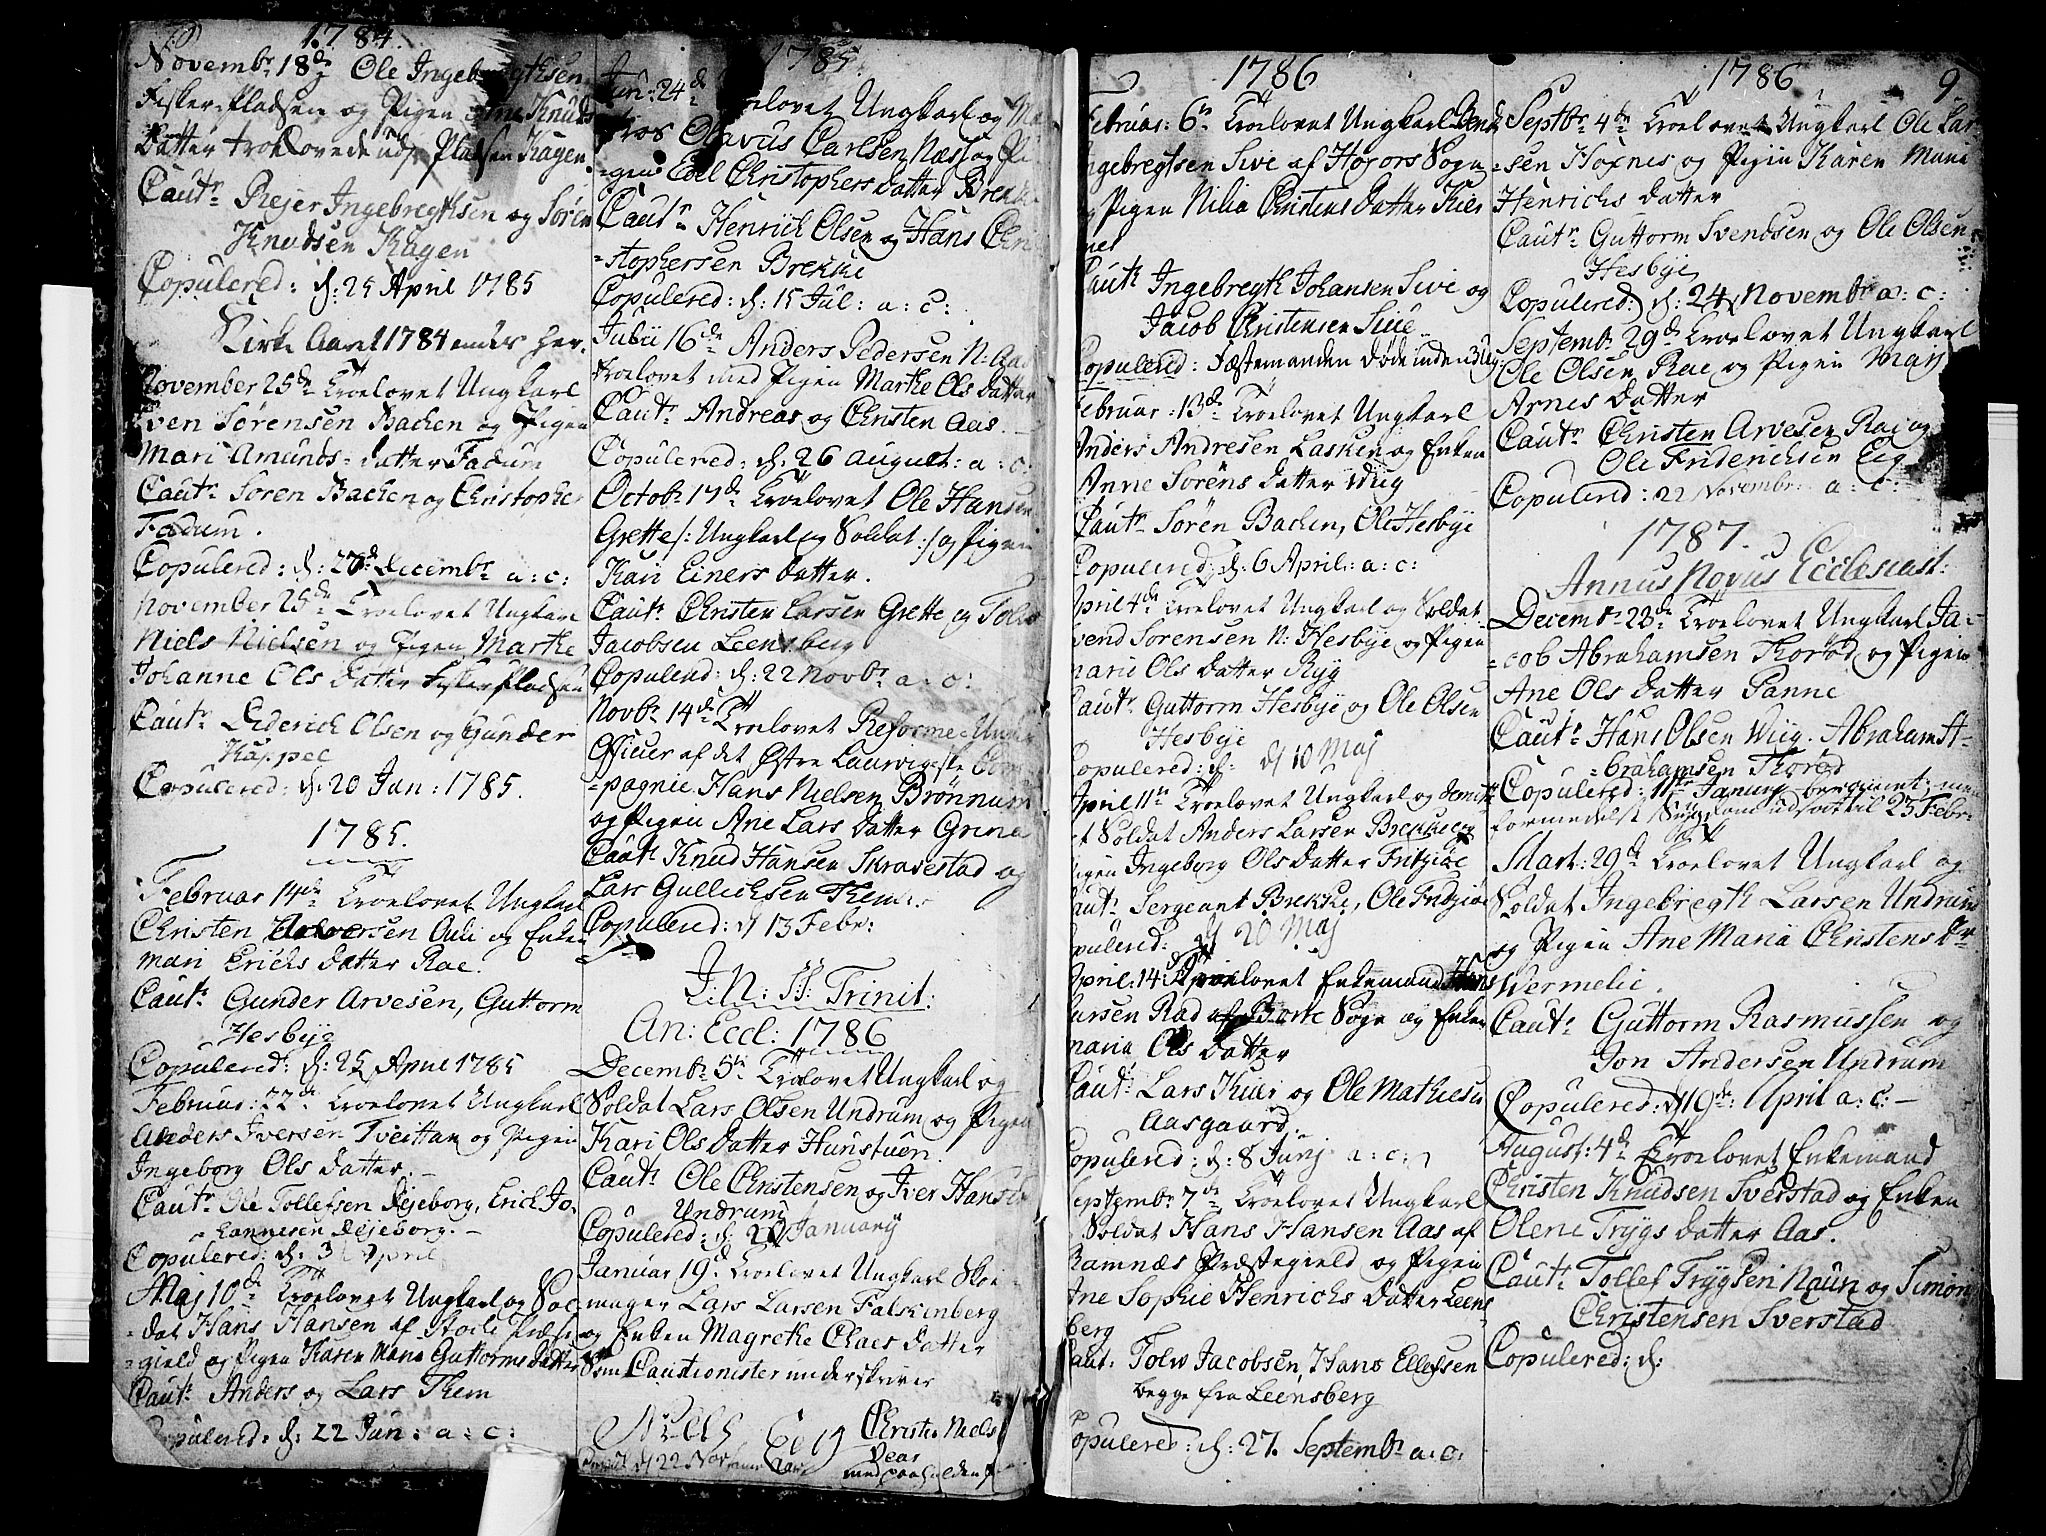 1784.
Novembr 18de Ole Ingebregthsen
Fisker-Pladsen og Pigen Knuds
Datter trolovede udj Pladsen Kagen.
Cautr Rejer Ingebregthsen og Sören
Knudsen Kagen
Copulered: d: 25 April 1785
Kirke Aaret 1784 endes her.
November 25de Troelovet Ungkarl
Sven Sörensen Bachen og Pigen
Mari Amunds-datter Fadum
Cautr Sören Bachen og Christopher
Fadum.
Copulered: d: 27de Decembr a: c:
November 25de Troelovet Ungkarl
Niels Nielsen og Pigen Marthe
Johanne Ols datter Fisker Pladsen
Cautr Diderich Olsen og Gunder
Kappel
Copulered: d: 20 Jan: 1785.
1785.
Februar 14de Troelovet Ungkarl
Christen Halvorsen Auli og Enken
Mari Erichs datter Rae.
Cautr Gunder Arvesen, Guttorm
Hesbye
Copulered: d: 25 April 1785
Februar: 22de Troelovet Ungkarl
Anders Iversen Tveittan og Pigen
Ingeborg Ols datter.-
Cautr Ole Tollefsen Dejeborg, Erich Jo-
hannesen Dejeborg.-
Copulered: d: 3 April
Maj 10de Troelovet Ungkarl og Sol-
dat Hans Hansen af Præste-
-gield og Pigen Karen Maria Guttorms datter
Cautr Anders og Lars Them
Copulered: d: 22 Jun: a: c:
1785.
Jun: 24de Troelovet Ungkarl og
Olavus Carlsen Næss og Pi-
gen Edel Christophers datter Brekke
Cautr Henrich Olsen og Hans Chri-
-stophersen Brekke
Copulered: d: 15 Jul: a: c:
Julii 16de Anders Pedersen N: Aas
troelovet med Pigen Marthe Ols datter
Cautr Andreas og Christen Aas.
Copulered: d: 26 August: a: c:
Octobr 17de Troelovet Ole Hansen
Grette /: Ungkarl og Soldat :/ og Pigen
Kari Einers datter.
Cautr Christen Larsen Grette og Tolw
Jacobsen Leensberg
Copulered: d: 22 Novbr a: c:
Novbr 14de Troelovet Reformeed Under
Officer af det Østre Laurvigske Com-
-pagnie Hans Nielsen Brönnum
og Pigen Ane Lars datter Grine
Cautr Knud Hansen Skravestad og
Lars Gullichsen Them
Copulered: d 13 Febr:
J: N: SS: Trinit:
An: Eccl: 1786
Decembr 5te Troelovet Ungkarl og
Soldat Lars Olsen Undrum og Pigen
Kari Ols datter Hunstuen.
Cautr Ole Christensen og Iver Hansen
Undrum
Copulered: d: 20 January
Januar 19de Troelovet Ungkarl Skoe-
mager Lars Larsen Falskenberg
og Enken Magrethe Claes datter
Som Cautionister underskriver
Christen Niels
med paaholden Pen
d 22 Novembr
1786
Februar: 6te Troelovet Ungkarl
Ingebregtsen Sive af Hogors Sogn
og Pigen Nilia Christens datter Kier
nes
Cautr Ingebregth Johansen Sive og
Jacob Christensen Sive
Copulered: Fæstemanden döde inden
Februar: 13de Troelovet Ungkarl
Anders Andresen Lasken og Enken
Anne Sörens datter Wiig
Cautr Sören Bachen, Ole Hesbye
Copulered: d: 6 April: a: c:
April 4de Troelovet Ungkarl og Soldat
Svend Sörensen N: Hesbye og Pigen
Marie Ols datter Ryg
Cautr Guttorm Hesbye og Ole Olsen
Hesbye
Copulered: d: d 10 Maj
April 11te Troelovet Ungkarl og demitte-
-t Soldat Anders Larsen Brekke og
Pigen Ingeborg Ols datter Fritzöe
Cautr Sergeant Brekke, Ole Fritzöe
Copulered: d 20 Maj
April: 14de Troelovet Enkemand Hans
Larsen Rad af Borre Sogn og Enken
Maria Ols datter
Cautr Lars Kier og Ole Mathiesen
Aasgaard.
Copulered: d: 8 Junj a: c:
Septembr 7de Troelovet Ungkarl
Soldat Hans Hansen Aas af
Ramnæs Præstegield og Pigen
Ane Sophie Henrichs datter Leens-
berg
Caut: Tolw Jacobsen, Hans Ellefsen
begge fra Leensberg
Copulered: d: 27. Septembr a: c:
1786 9
Septbr 4de Troelovet Ungkarl Ole Lar-
-sen Hoxnes og Pigen Karen Maria
Henrichs datter
Cautr Guttorm Svendsen og Ole Olsen
Hesbye
Copulered: d: 24 Novembr a: c:
Septembr 29de Troelovet Ungkarl
Ole Olsen Rae og Pigen Mary
Arnes datter
Cautr Christen Arvesen Rae og
Ole Friderichsen Eeg
Copulered: 22 Novembr: a: c:
1787.
Annus Novus Ecclesiast:
Decembr 28de Troelovet Ungkarl Ja-
-cob Abrahamsen Thoröd og Pigen
Ane Ols datter Panne
Cautr Hans Olsen Wiig. Abraham A-
-brahamsen Thoröd
Copulered: 11te January berammet, men
formedelst Sygdom udsatt til 23 Febr:
Mart: 29de Troelovet Ungkarl og
Soldat Ingebregth Larsen Undrum
og Pigen Ane Maria Christens Dr
Wermelie.
Cautr Guttorm Rasmussen og
Jon Andersen Undrum
Copulered: d 19de April a: c:-
August: 4de Troelovet Enkemand
Christen Knudsen Sverstad og Enken
Olene Trygs datter Aas.
Cautr Tollef Trygsen Naun og Simon
Christensen Sverstad
Copulered: d: